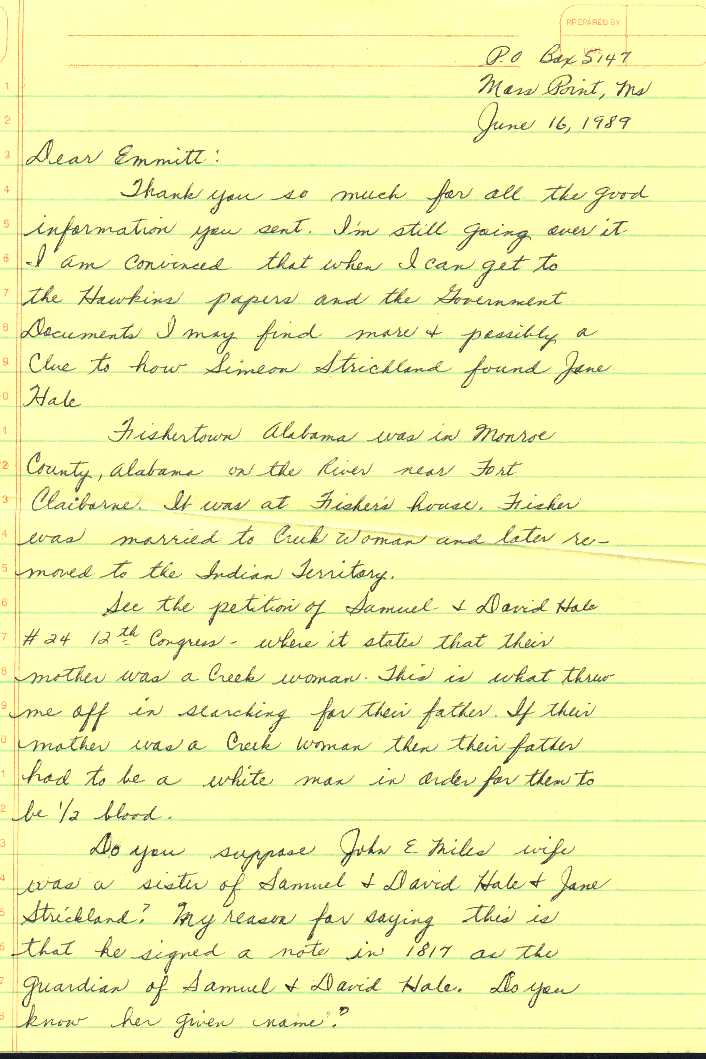 PREPARED BY
P.O Box 5147
Moss Point, Ms
June 16, 1989
Dear Emmitt:
Thank you so much for all the good
information you sent. I'm still going over it
I am convinced that when I can get to
the Hawkins papers and the Government
Documents I may find more & possibly a
Clue to how Simeon Strickland found Jane
Hale
Fishertown Alabama was in Monroe
County, Alabama on the River near Fort
Claiborne. It was at Fisher's house. Fisher
was married to Creek Woman and later re-
moved to the Indian Territory.
See the petition of Samuel & David Hale
#24 12th Congress - where it states that their
mother was a Creek woman. This is what threw
me off in searching for their father. If their
mother was a Creek woman then their father
had to be a white man in order for them to
be 1/2 blood.
Do you suppose John E. Miles wife
was a sister of Samuel & David Hale & Jane
Strickland? My reason for saying this is
that he signed a note in 1817 as the
guardian of Samuel & David Hale. Do you
know her given name?